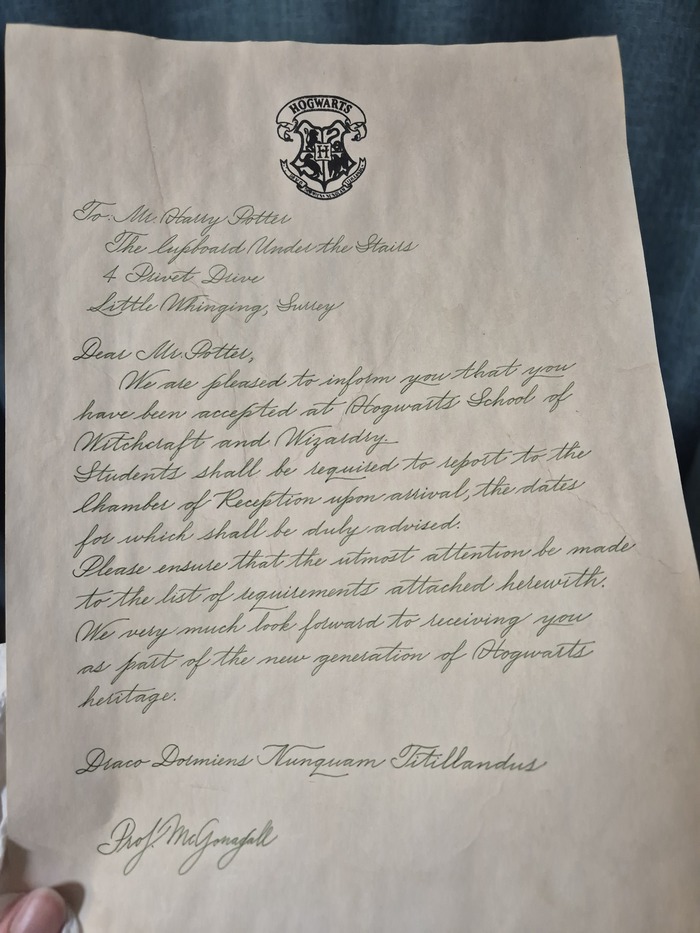 HOGWARTS
H
To: Mr. Harry Potter
The Cupboard Under the Stairs
4 Privet Drive
Little Whinging, Surrey
Dear Mr. Potter,
We are pleased to inform you that you
have been accepted at Hogwarts School of
Witchcraft and Wizardry.
Students shall be required to report to the
Chamber of Reception upon arrival, the dates
for which shall be duly advised.
Please ensure that the utmost attention be made
to the list of requirements attached herewith.
We very much look forward to receiving you
as part of the new generation of Hogwarts
heritage.
Draco Dormiens Nunquam Titillandus
Prof. McGonagall